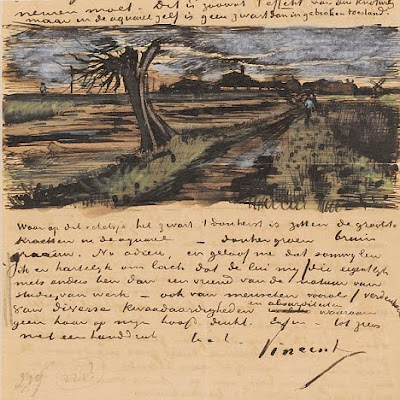 nemen moet. Dit is zoowat 't effect van den
maar in de aquarel zelf is geen zwart dan in gebroken toestand.
Waar op dit schetsje het zwart 't donkerst is zitten de grootste
krachten in de aquarel — donkergroen bruin
graauw. Nu adieu, en geloof me dat
ik er hartelijk om lach dat de lui mij (die eigentlijk
niets anders ben dan een vriend van de natuur van
studie van werk — ook van menschen vooral) verdenken
van diverse kwaadaardigheden en absurditeiten waaraan
geen haar op mijn hoofd denkt. Enfin — tot ziens
met een handdruk t. à t.
Vincent